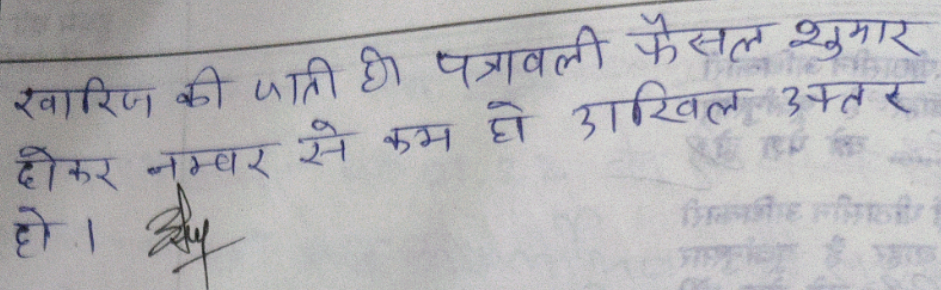 खारिज की जाती है। पत्रावली फैसल शुमार
होकर नम्बर से कम हो दाखिल दफ्तर
हो।